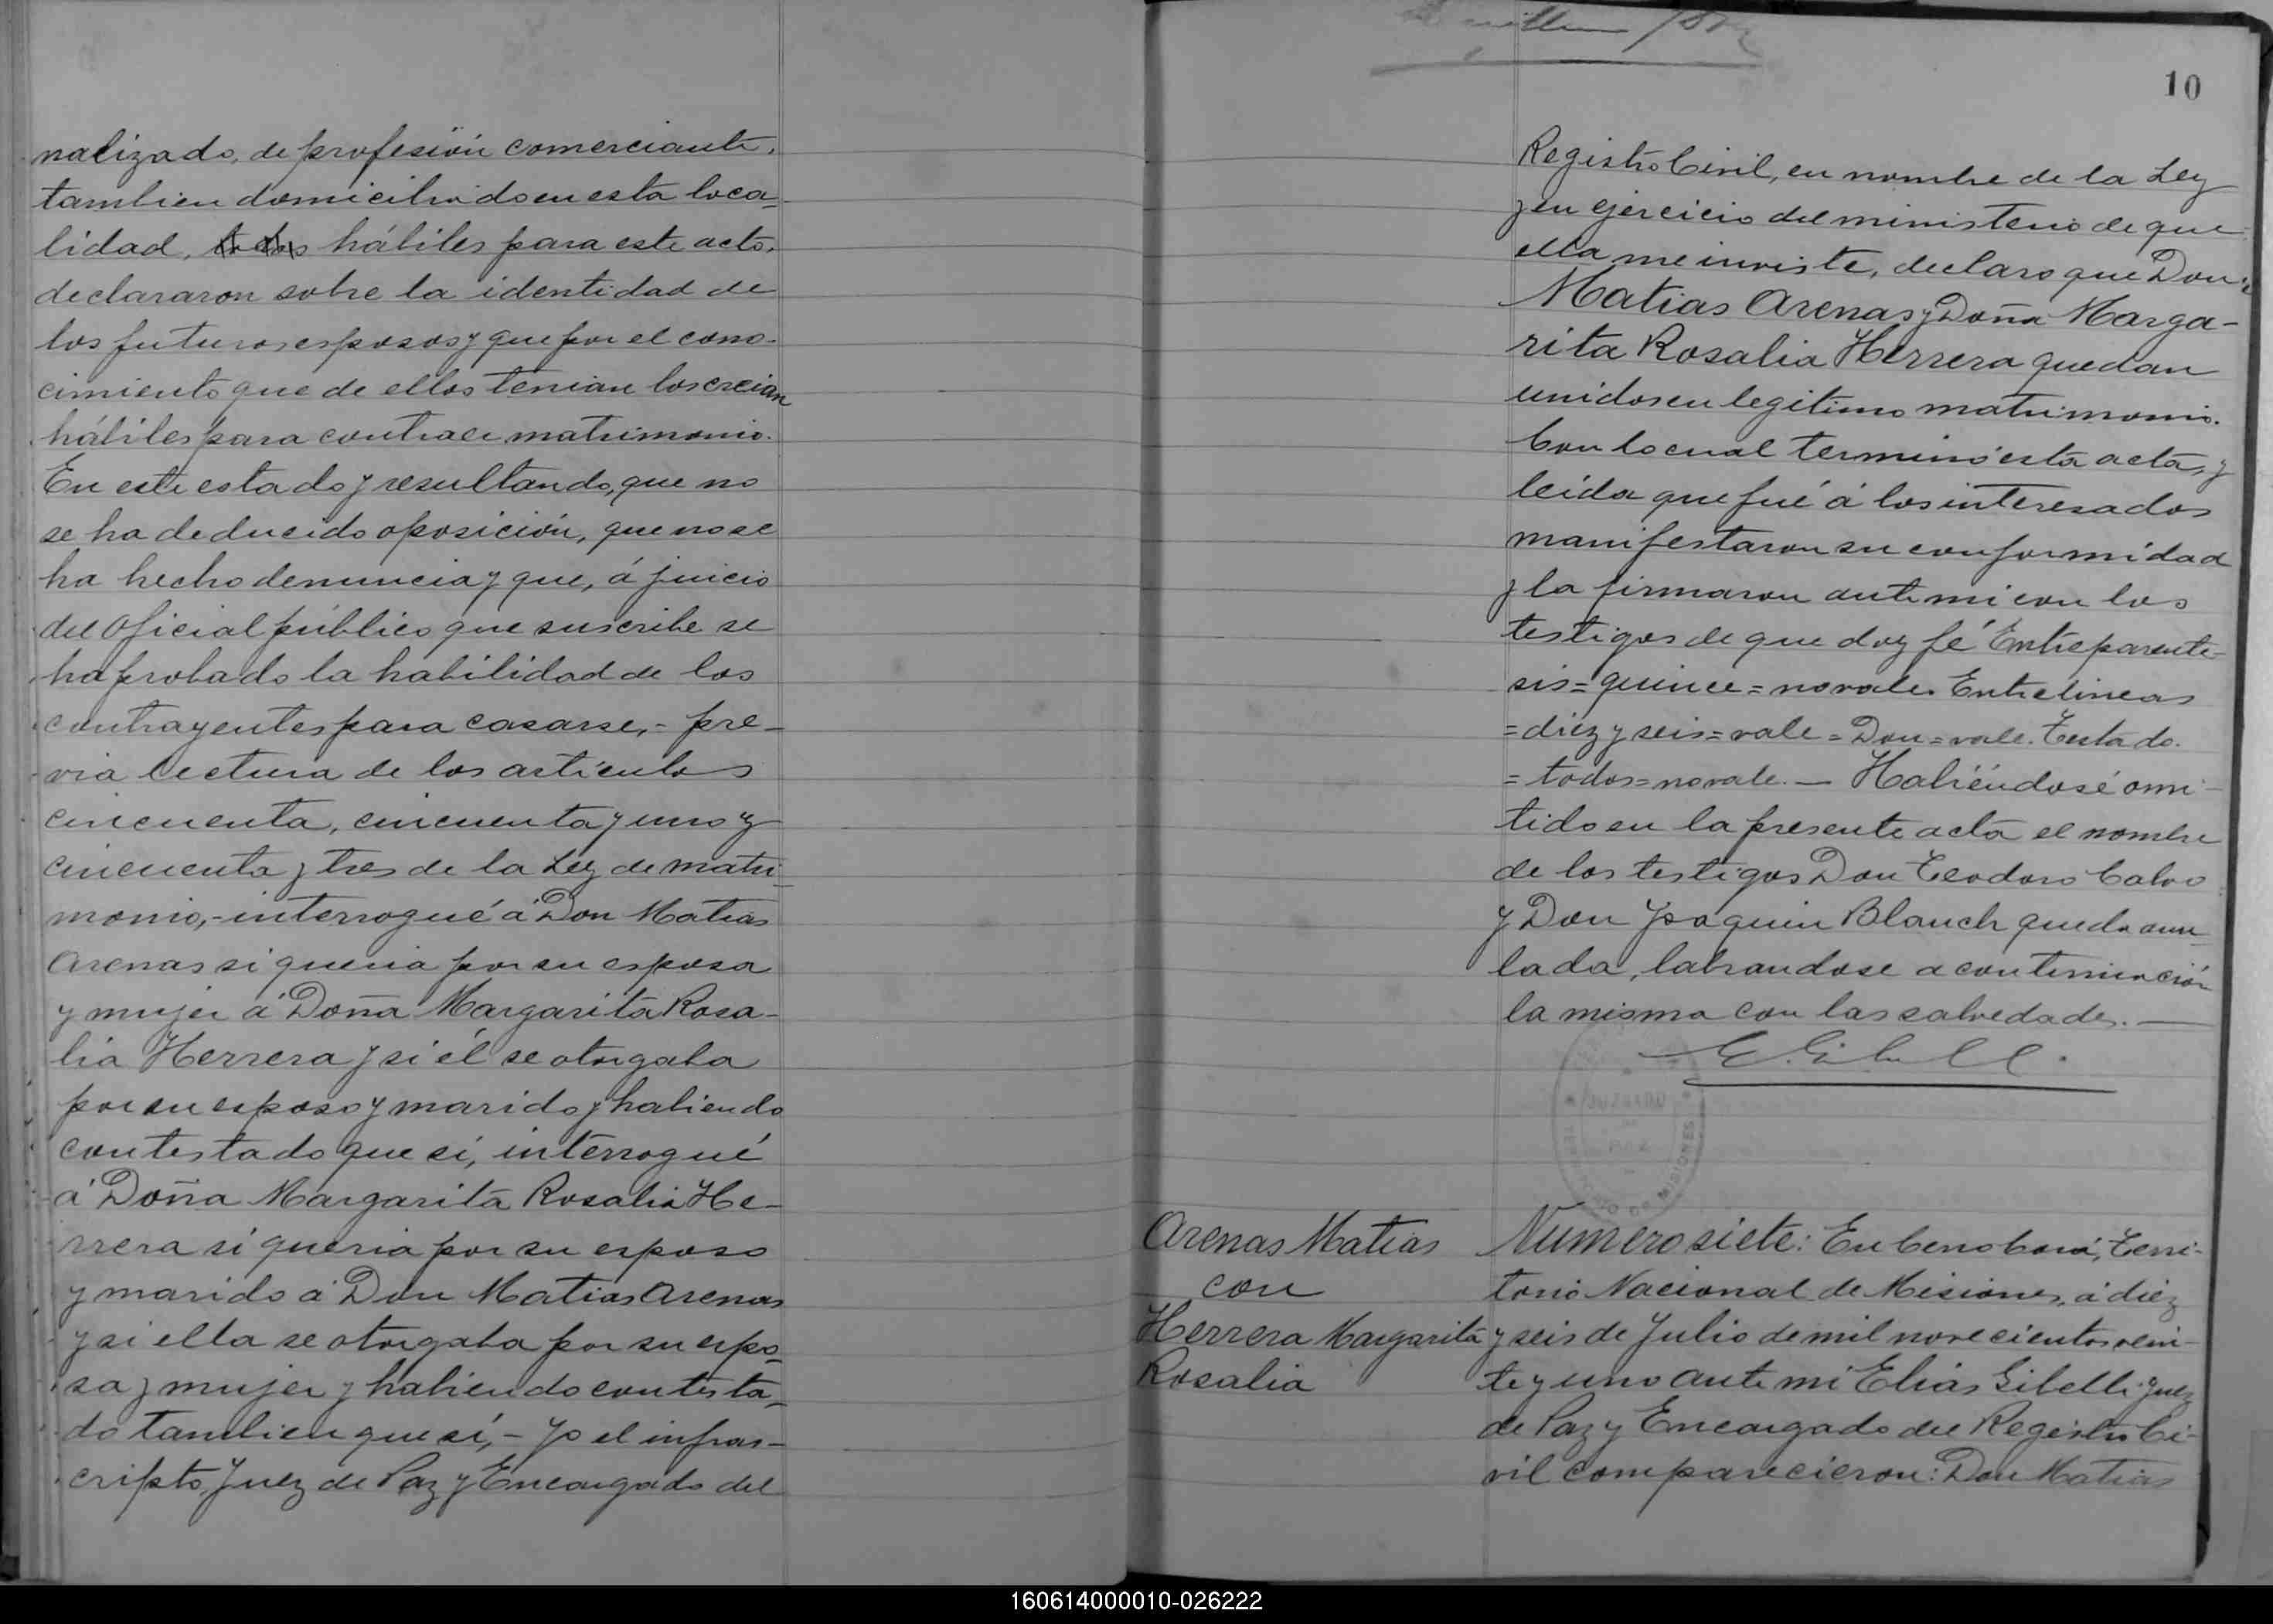 nalizado, de profesión comerciante,
tambien domiciliado en esta loca=
lidad, todos hábiles para este acto,
declararon sobre la identidad de
los futuros esposos y que por el cono-
cimiento que de ellos tenian los creian
hábiles para contraer matrimonio.
En este estado y resultando, que no
se ha deducido oposición, que no se
ha hecho denuncia y que, á juicio
del Oficial público que suscribe se
ha probado la habilidad de los
contrayentes para casarse, - pre-
via lectura de los articulos
cincuenta, cincuenta y uno y
cincuenta y tres de la Ley de matri-
monio, - interrogué á Don Matias
Arenas si queria por su esposa
y mujer á Doña Margarita Rosa-
lia Herrera y si él se otorgaba
por su esposo y marido y habiendo
contestado que sí, interrogué
á Doña Margarita Rosalia He-
rrera si queria por su esposo
y marido á Don Matias Arenas
y si ella se otorgaba por su espo=
sa y mujer y habiendo contesta=
do tambien que sí, - Yo el infras-
cripto, Juez de Paz y Encargado del
10
Registro Civil, en nombre de la Ley
y en ejercicio del ministerio de que
ella me inviste, declaro que Don
Matias Arenas y Doña Marga-
rita Rosalia Herrera quedan
unidos en legitimo matrimonio.
Con lo cual terminó esta acta, y
leida que fué á los interesados
manifestaron su conformidad
y la firmaron ante mi con los
testigos de que doy fé Entre parente-
sis = quince = no vale. Entre lineas
= diez y seis = vale = Don = vale. Testado.
= todos = no vale. — Habiéndosé omi-
tido en la presente acta el nombre
de los testigos Don Teodoro Calvo
y Don Joaquin Blanch queda anu-
lada, labrandose a continuación
la misma con las salvedades. —
E. Gibelli.
JUZGADO
DE
PAZ
MISIONES
Arenas Matias
con
Herrera Margarita
Rosalia
Numero siete: En Cerro Corá, Terri-
torio Nacional de Misiones, á diez
y seis de Julio de mil novecientos vein-
te y uno ante mi Elias Gibelli Juez
de Paz y Encargado del Registro Ci-
vil comparecieron: Don Matias
160614000010-026222